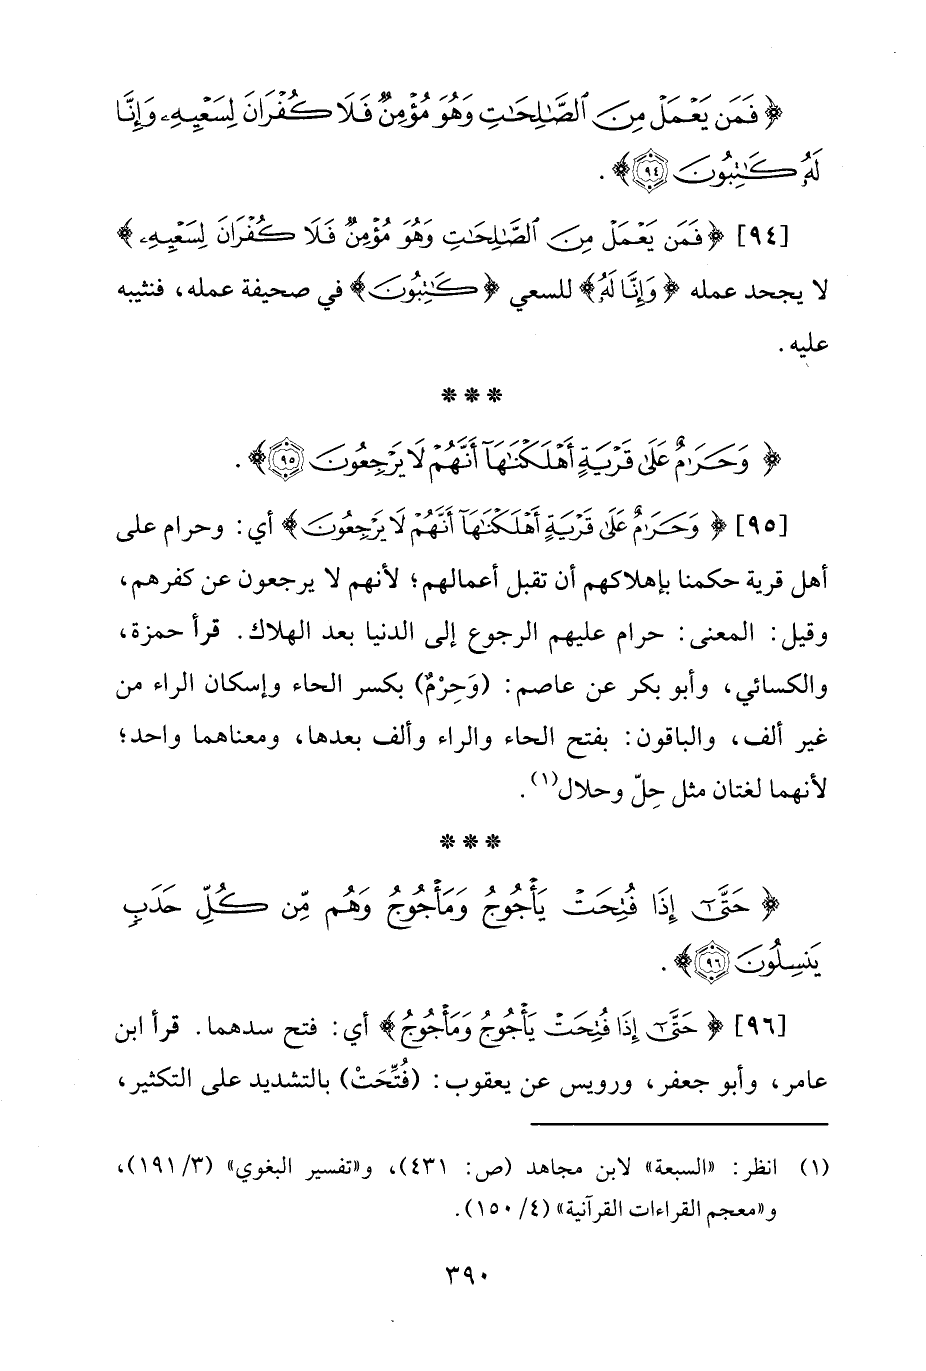 ﴿ فَمَن يَعْمَلْ مِنَ ٱلصَّٰلِحَٰتِ وَهُوَ مُؤْمِنٌ فَلَا كُفْرَانَ لِسَعْيِهِۦ وَإِنَّا
لَهُۥ كَٰتِبُونَ ٩٤ ﴾ .
[٩٤] ﴿ فَمَن يَعْمَلْ مِنَ ٱلصَّٰلِحَٰتِ وَهُوَ مُؤْمِنٌ فَلَا كُفْرَانَ لِسَعْيِهِۦ ﴾
لا يجحد عمله ﴿ وَإِنَّا لَهُۥ ﴾ للسعي ﴿ كَٰتِبُونَ ﴾ في صحيفة عمله، فنثيبه
عليه .
* * *
﴿ وَحَرَٰمٌ عَلَىٰ قَرْيَةٍ أَهْلَكْنَٰهَآ أَنَّهُمْ لَا يَرْجِعُونَ ٩٥ ﴾ .
[٩٥] ﴿ وَحَرَٰمٌ عَلَىٰ قَرْيَةٍ أَهْلَكْنَٰهَآ أَنَّهُمْ لَا يَرْجِعُونَ ﴾ أي: وحرام على
أهل قرية حكمنا بإهلاكهم أن تقبل أعمالهم؛ لأنهم لا يرجعون عن كفرهم،
وقيل: المعنى: حرام عليهم الرجوع إلى الدنيا بعد الهلاك. قرأ حمزة،
والكسائي، وأبو بكر عن عاصم: (وَحِرْمٌ) بكسر الحاء وإسكان الراء من
غير ألف، والباقون: بفتح الحاء والراء وألف بعدها، ومعناهما واحد؛
لأنهما لغتان مثل حِلّ وحلال(١).
* * *
﴿ حَتَّىٰٓ إِذَا فُتِحَتْ يَأْجُوجُ وَمَأْجُوجُ وَهُم مِّن كُلِّ حَدَبٍ
يَنسِلُونَ ٩٦ ﴾ .
[٩٦] ﴿ حَتَّىٰٓ إِذَا فُتِحَتْ يَأْجُوجُ وَمَأْجُوجُ ﴾ أي: فتح سدهما. قرأ ابن
عامر، وأبو جعفر، ورويس عن يعقوب: (فُتِّحَتْ) بالتشديد على التكثير،
(١) انظر: «السبعة» لابن مجاهد (ص: ٤٣١)، و«تفسير البغوي» (٣/ ١٩١)،
و«معجم القراءات القرآنية» (٤/ ١٥٠).
٣٩٠